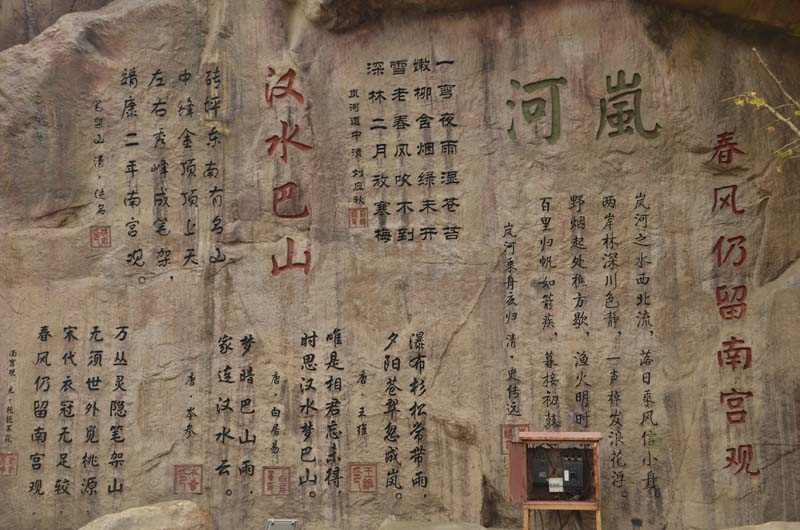 春风仍留南宫观
嵐河
岚河之水西北流，落日乘风信小舟
两岸林深川色静，一声棹发浪花浮
野烟起处樵方歇，渔火明时
百里归帆如箭疾，暮接初鼓
岚河乘舟夜归 清，史传远
一弯夜雨湿苍苔
嫩柳含烟绿未开
雪老春风吹不到
深林二月放寒梅
岚河道中 清 刘应秋
汉水巴山
砖坪东南有名山
中峰金顶顶上天
左右秀峰成笔架，
靖康二年南宫观。
笔架山 清，佚名
瀑布杉松常带雨，
夕阳苍翠忽成岚。
唐，王维
唯是相君忘未得，
时思汉水梦巴山。
唐，白居易
梦暗巴山雨，
家连汉水云。
唐，岑参
万丛灵隐笔架山
无须世外觅桃源
宋代衣冠无足较
春风仍留南宫观
南宫观